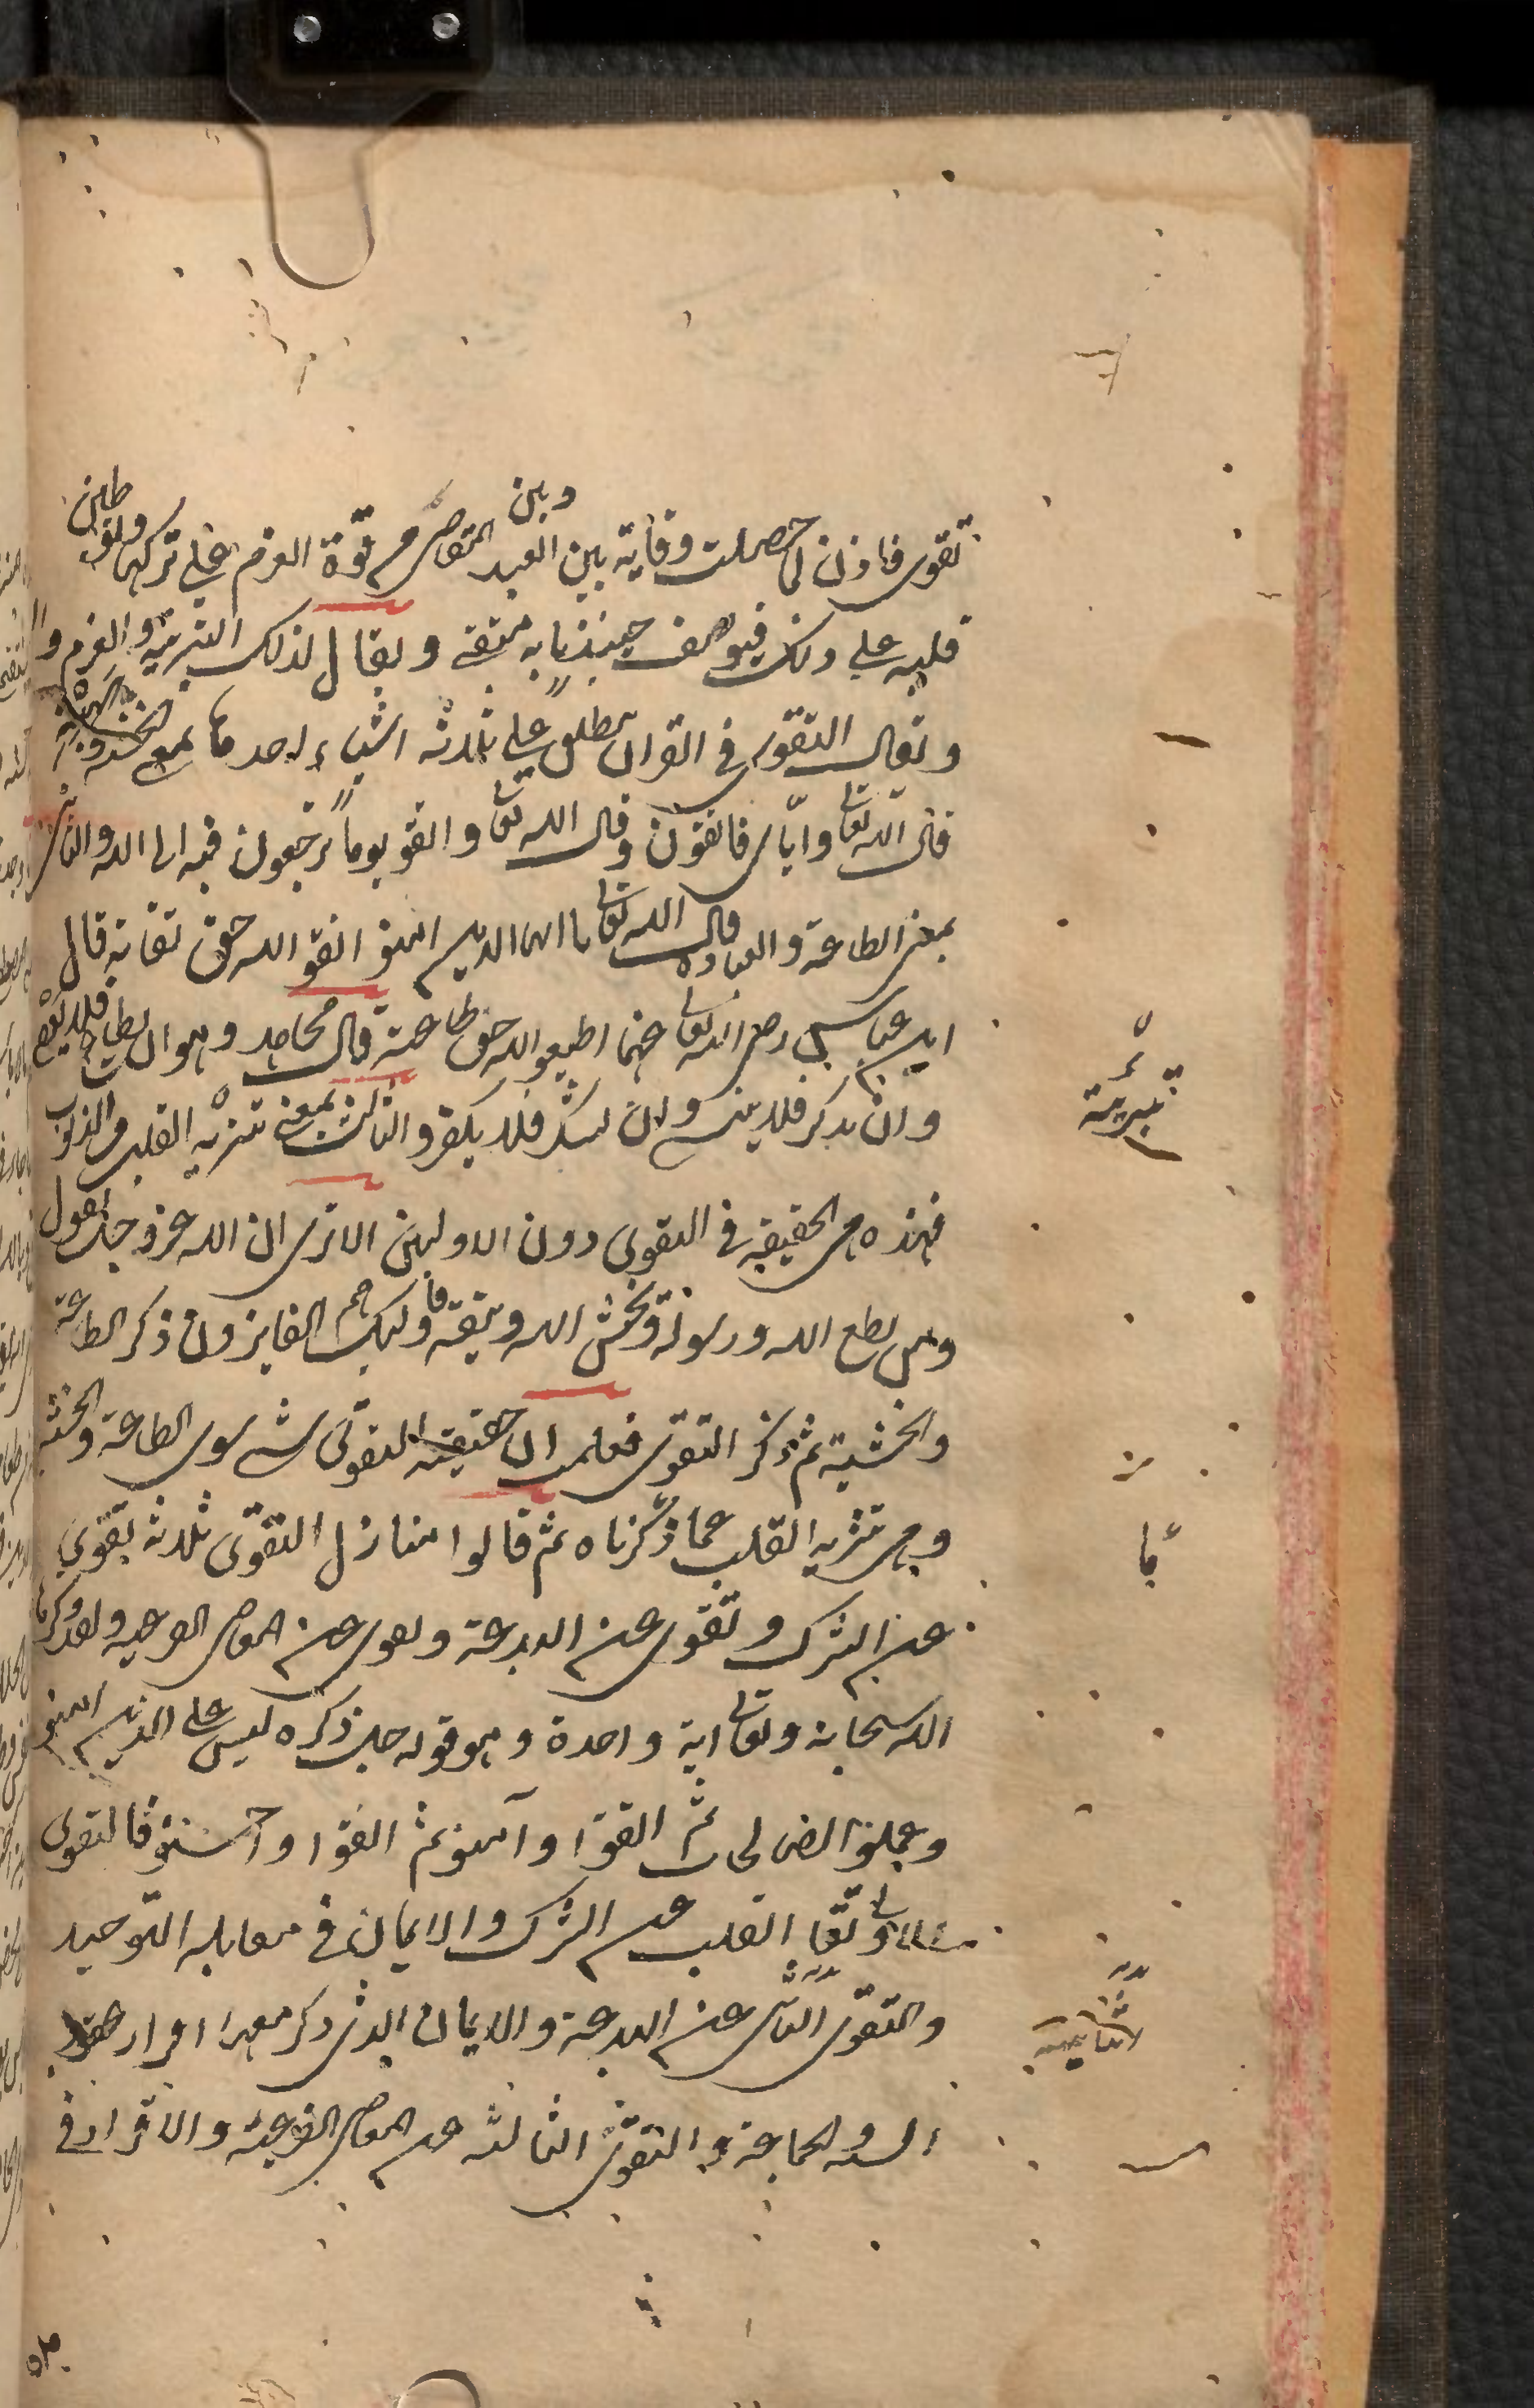 وبين
تقوى فاذن لما حصلت وقاية بين العبد المعاصى من قوة العزم على تركها وتوطين
قلبه على ذلك فيوصف حينئذ بانه متقى ويقال لذلك التبرية والعزم و
ويقال التقوى فى القران يطلق على ثلاثة اشياء احدها بمعنى الخشية
قال الله تعا واياى فاتقون وقال الله تعا واتقو يوما ترجعون فيه الى الله والثانى
بمعنى الطاعة والعباده قال الله تعا يا ايها الذين امنو اتقو الله حق تقاته قال
ابن عباس رضى الله تعا عنهما اطيعو الله حق طاعته قال مجاهد وهو ان يطاع فلا يعصى
وان يذكر فلا ينسى وان يشكر فلا يكفر والثالث بمعنى تنزيه القلب من الذنوب
فهذه هى الحقيقة فى التقوى دون الاوليين الا ترى ان الله عز وجل يقول
ومن يطع الله ورسوله ويخش الله ويتقه فاوليك هم الفايزون ذكر الطاعة
والخشية ثم ذكر التقوى فعلمت ان حقيقة التقوى شى سوى الطاعة والخشية
وهى تنزيه القلب عما ذكرناه ثم قالوا منازل التقوى ثلاثة تقوى
عن الشرك وتقوى عن البدعة وتقوى عن المعاصى الفرعية ولقد ذكرها
الله سبحانه وتعا اية واحدة وهو قوله جل ذكره ليس على الذين امنو
وعملو الصالحات ثم اتقوا وآمنو ثم اتقوا واحسنو فالتقوى
القلب عن الشرك والايمان فى مقابلة التوحيد
والتقوى الثانى عن البدعة والايمان الذى ذكر معها اقرار
السنة والجماعة والتقوى الثالثة عن المعاصى الفرعية والاقرار فى
تبرئة
الثانية